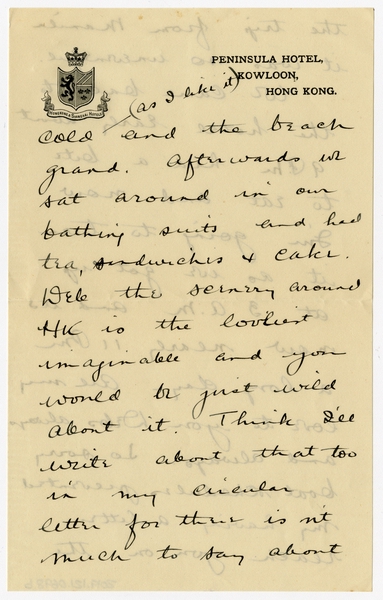 PENINSULA HOTEL,
KOWLOON,
HONG KONG.
(as I like it)
cold and the beach
grand. Afterwards we
sat around in our
bathing suits and had
tea, sandwiches & cake.
Deb the scenery around
HK is the lovliest
imaginable and you
would be just wild
about it. Think I'll
write about that too
in my circular
letter for there isn't
much to say about